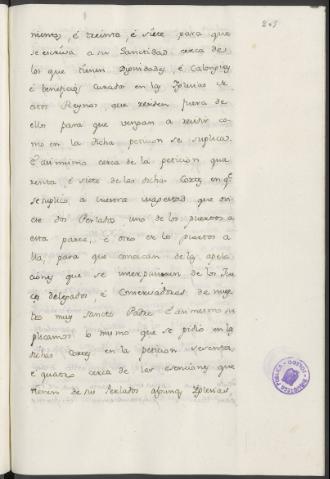 203
nientos, é treinta, é siete para que
se escriva a su Santidad cerca de
los que tienen Dignidades, é Calongias
é beneficios Curados en las Iglesias de
estos Reynos, que residen fuera de
ellos para que vengan a residir co
mo en la dicha peticion se suplica.
E asimismo cerca de la peticion qua
renta, é siete de las dichas Cortes en q.e
se suplico a vuestra magestad que
dos Perlados uno de los puertos a
esta parte, é otro de los puertos a
lla, para que conozcan de las apela
ciones que se interpusieren de los Jue
ces delegados, é Conservadores de nues
tro muy Sancto Padre E asimesmo su
plicamos lo mismo que se pidió en las
dichas Cortes en la peticion sesenta,
é quatro cerca de las esenciones que
tienen de sus Perlados algunas Iglesias,
BIBLIOTECA PUBLICA